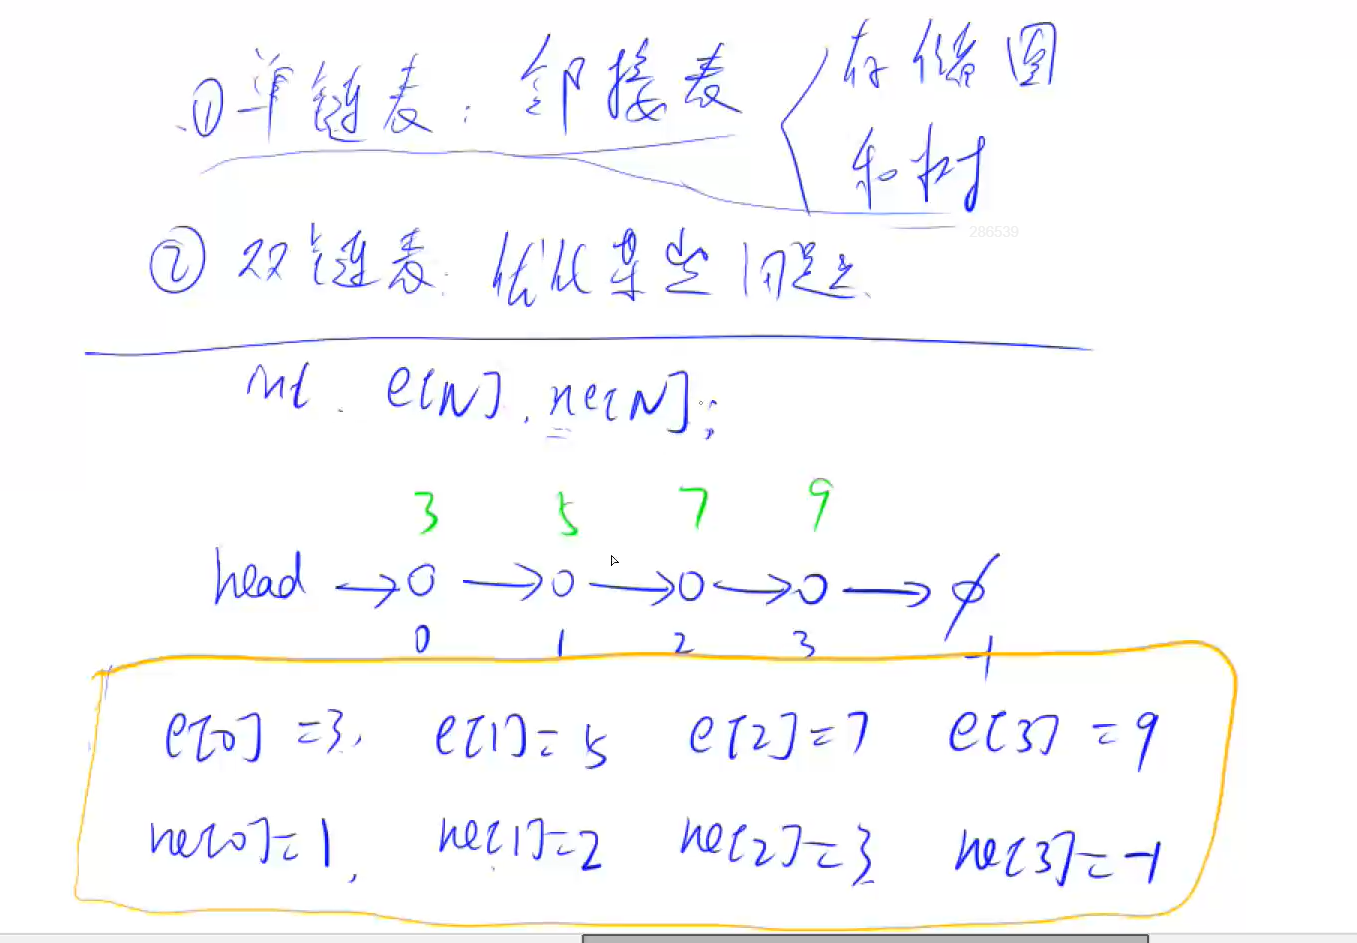 ①单链表：邻接表 存储图
和树
286539
②双链表：优化某些问题
int e[N], ne[N];
3 5 7 9
head → O → O → O → O → ∅
0 1 2 3 -1
e[0]=3, e[1]=5 e[2]=7 e[3]=9
ne[0]=1, ne[1]=2 ne[2]=3 ne[3]=-1